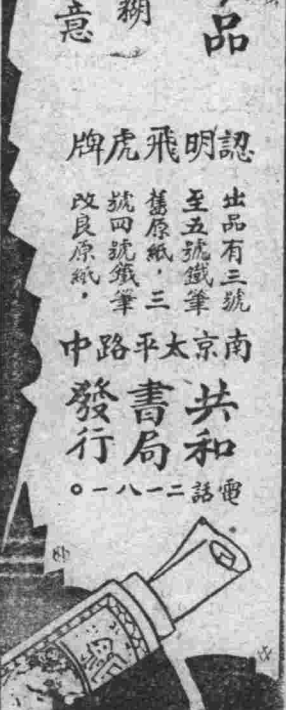 品
糊
意
認明飛虎牌
出品有三號
至五號鐵筆
舊原紙，三
號四號鐵筆
改良原紙，
南京太平路中
共和
書局
發行
電話二一八一〇